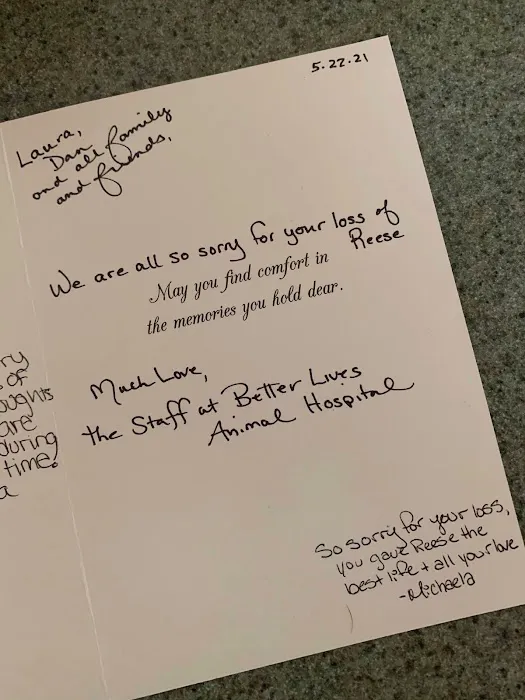 5.22.21
Laura,
Dan
and all family
and friends,
We are all so sorry for your loss of
Reese
May you find comfort in
the memories you hold dear.
Much Love,
the Staff at Better Lives
Animal Hospital
So sorry for your loss,
you gave Reese the
best life + all your love
-Michaela
of
are
during
time.